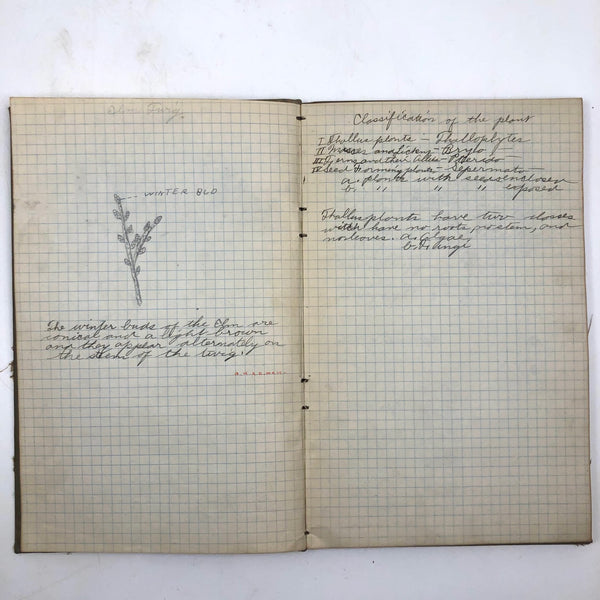 Elm Twig
WINTER BUD
The winter buds of the Elm are
conical and a light brown
and they appear alternately on
the stem of the twig.
Classification of the plant
I Thallus plants - Thallophytes
II Mosses and Lickens - Bryo -
III Ferns and their Allies - Pterido -
IV Seed Forming plants - Spermato -
a. plants with seeds enclosed
b. " " " exposed
Thallus plants have two classes
witch have no roots, no stem, and
no leaves. a. Algae,
b. Fungi